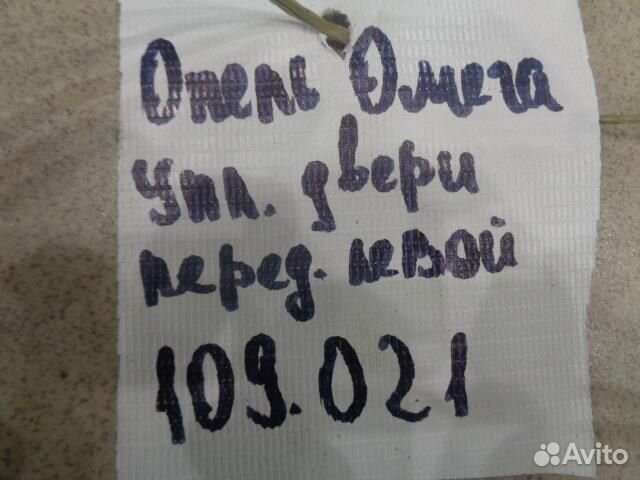 Опель Омега
Упл. двери
перед. левой
109.021
Avito